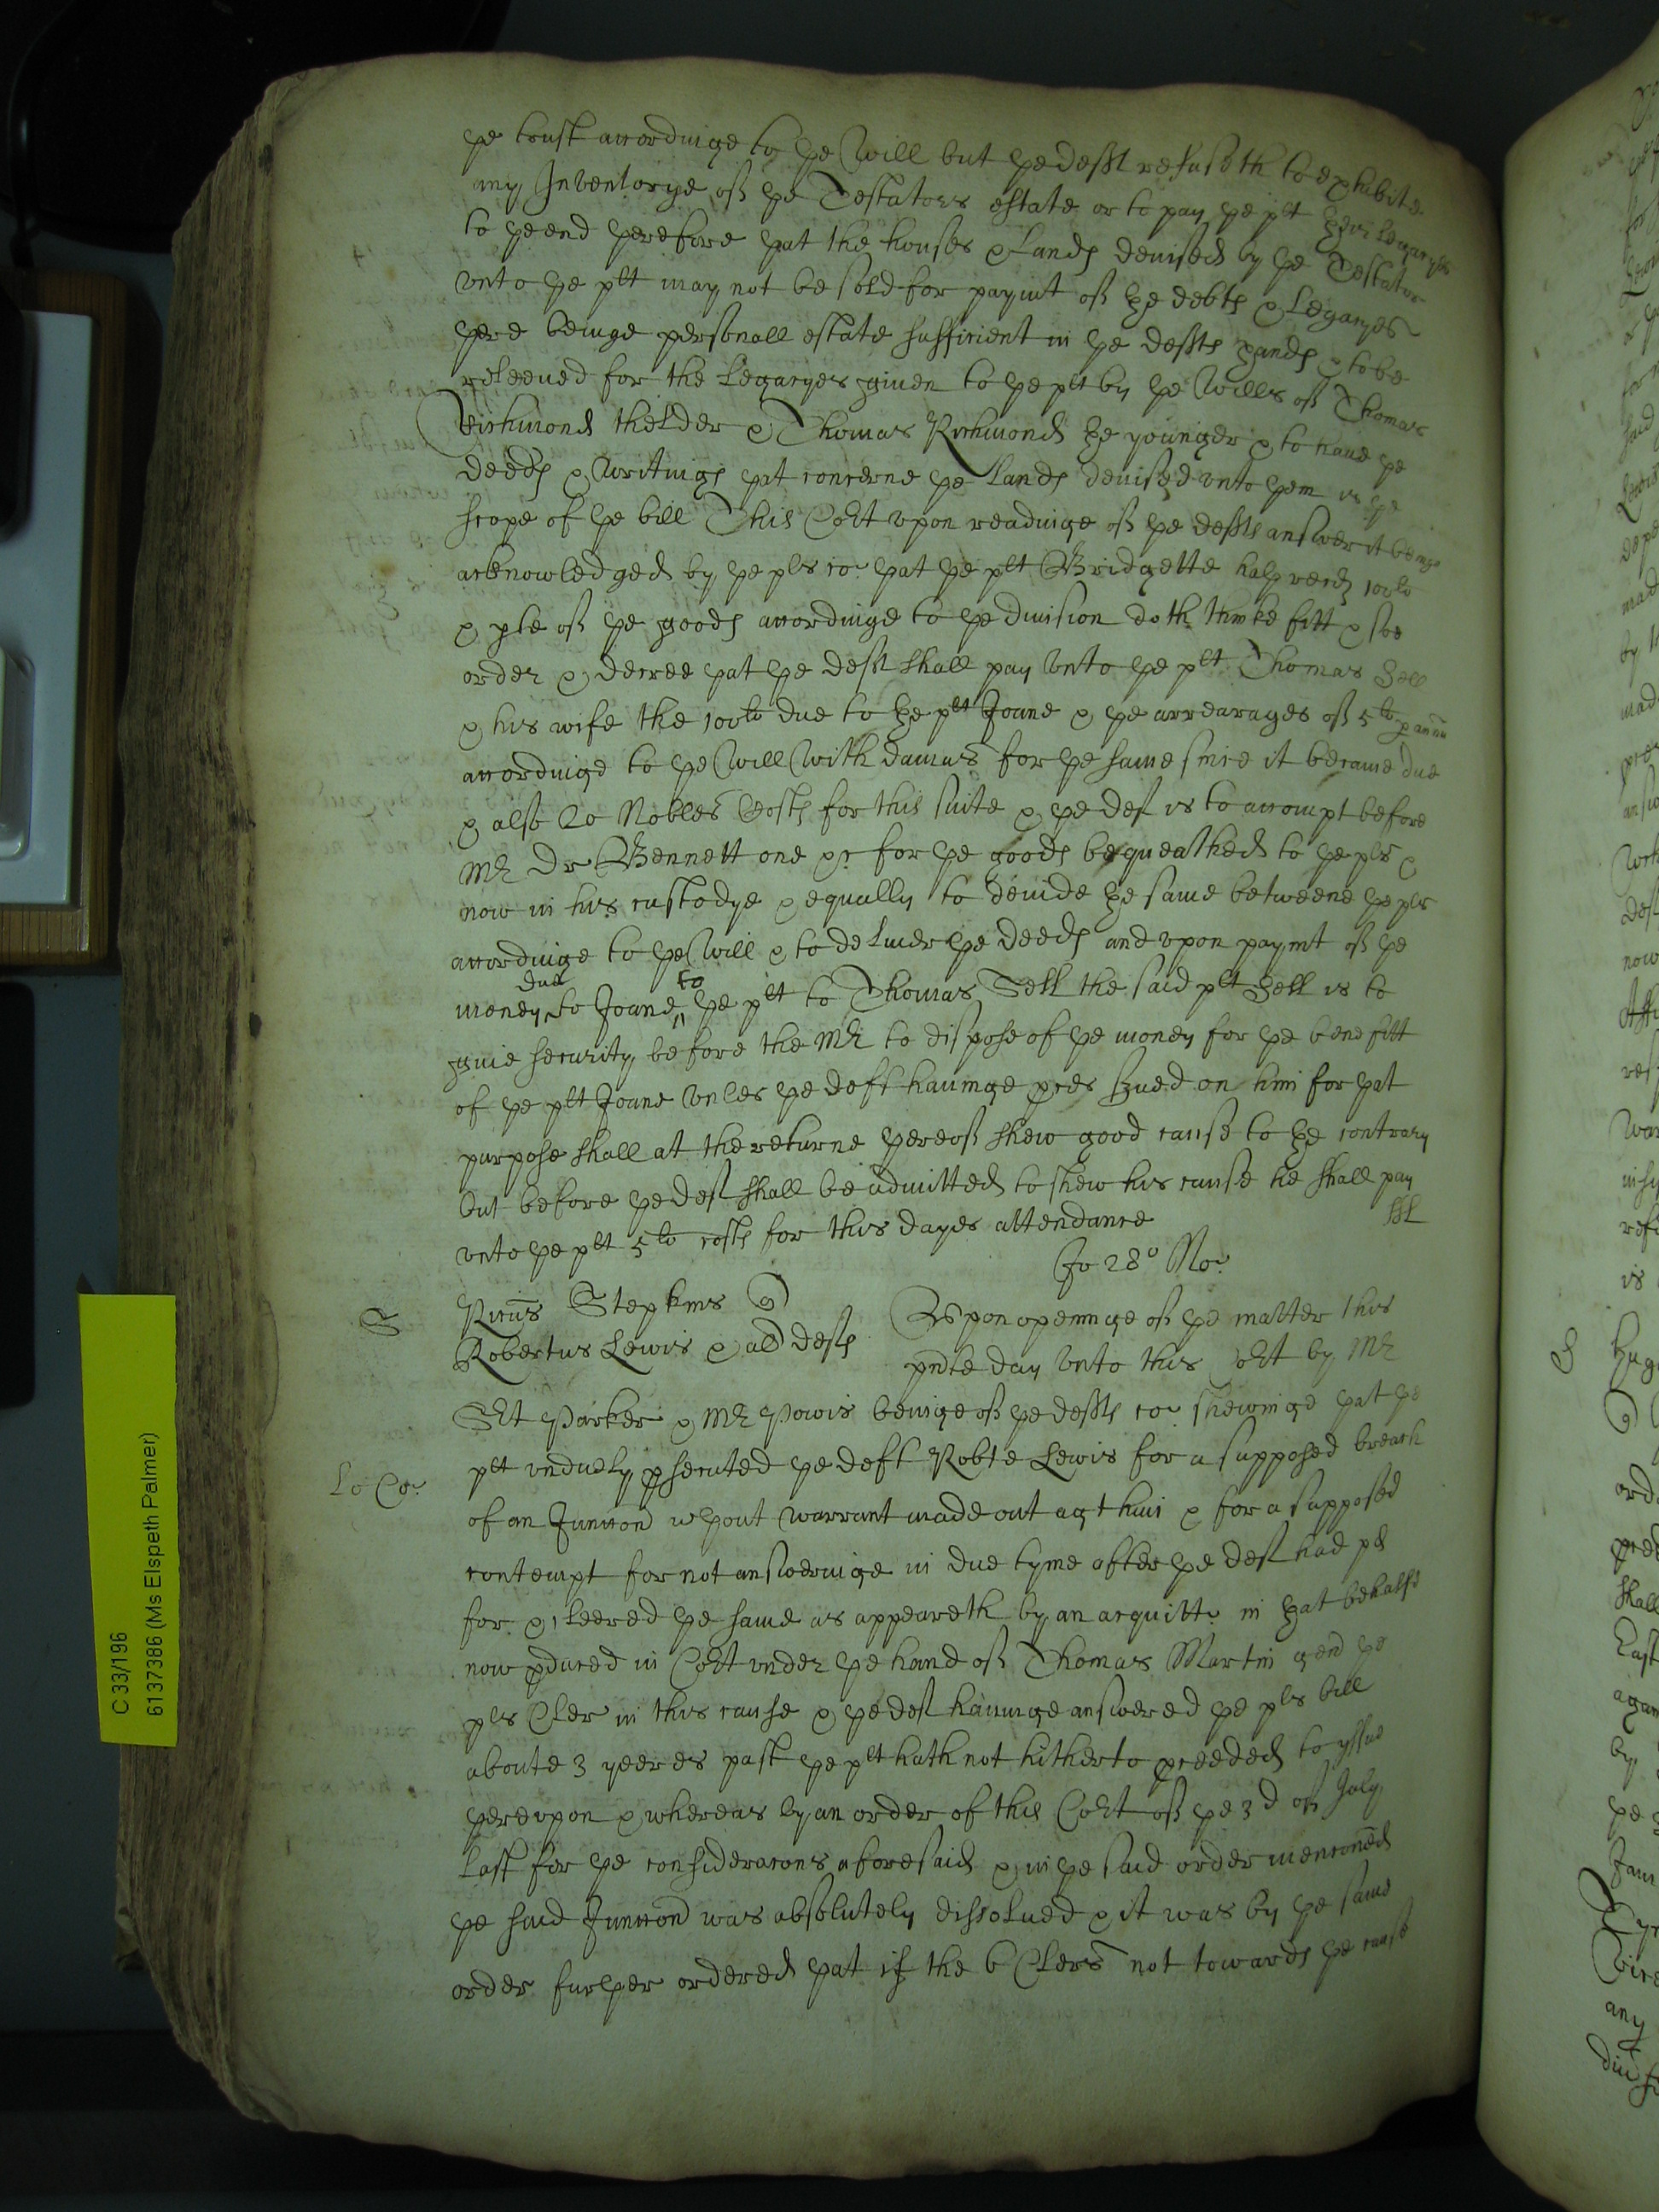 þe trust accordinge to þe will but þe defft refuseth to exhibite
any Inventorye off þe Testators estate or to pay þe plt þeir Legacyes
to þe end þerefore þat the houses & Lands devised by þe Testator
vnto þe plt may not be sold for paymt off þe debts & Legacyes
þere beinge personall estate sufficient in þe deffts hands & to be
releeued for the Legacyes giuen to þe plt by þe wills off Thomas
Richmond thelder & Thomas Richmond þe younger & to haue þe
deeds & writings þat concerne þe Lands deuised vnto þem is þe
scope of þe bill This Cort vpon readinge off þe deffts answer it beinge
acknowledged by þe pls co: þat þe plt Bridgette haþ recd 100li
& pte off þe goods accordinge to þe diuision doth thinke fitt & soe
order & decree þat þe deft shall pay vnto þe plt Thomas Sell
& his wife the 100li due to þe plt Joane & þe arrearages off 5li p annu
accordinge to þe will with damas for þe same since it became due
& also 20 Nobles Costs for this suite & þe deft is to accompt before
Mr Dr Bennett one &c for þe goods bequeathed to þe pls &
now in his custodye & equally to deuide þe same betweene þe pls
accordinge to þe will & to deliuer þe deeds and vpon paymt off þe
due to
money to Joane þe plt to Thomas Sell the said plt Sell is to
giue security before the Mr to dispose of þe money for þe benefitt
of þe plt Joane vnles þe deft hauinge pces serued on him for þat
purpose shall at the returne þereoff shew good cause to þe contrary
but before þe deft shall be admitted to shew his cause he shall pay
vnto þe plt 5li costs for this dayes attendance
Jo 28º No:
S
Ricus Stephins q
Robertus Lewis & al defts
Vpon openinge off þe matter this
pnte day vnto this Cort by Mr
Srt Parker & Mr Powis beinge off þe deffts co: shewinge þat þe
Lo Co:
plt vnduely psecuted þe deft Robte Lewis for a supposed breach
of an Junccon wþout warrant made out agt him & for a supposed
contempt for not answeringe in due tyme after þe deft had pd
for & cleered þe same as appeareth by an acquitt: in þat behalfe
now pduced in Cort vnder þe hand off Thomas Martin gen þe
pls Cler in this cause & þe deft hauinge answered þe pls bill
aboute 3 yeeres past þe plt hath not hitherto pceeded to yssue
þerevpon & whereas by an order of this Cort off þe 3d off July
last for þe consideracons aforesaid & in þe said order mencioned
þe said Junccon was absolutely dissolued & it was by þe same
order furþer ordered þat if the 6 Clers not towards þe cause
C 33/196
6137386 (Ms Elspeth Palmer)